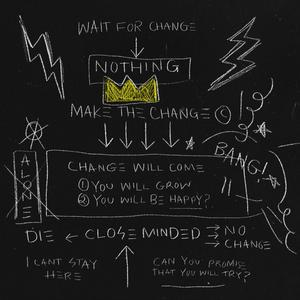 WAIT FOR CHANGE
NOTHING
MAKE THE CHANGE ©
BANG!
ALONE
CHANGE WILL COME
① YOU WILL GROW
② YOU WILL BE HAPPY?
DIE ← CLOSE MINDED → NO
→ CHANGE
I CANT STAY
HERE
CAN YOU PROMIE
THAT YOU WILL TRY?